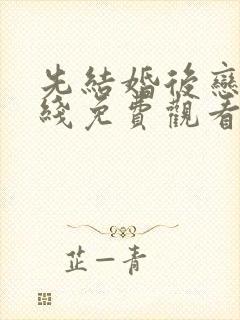 先結婚後戀
綫免費觀看
芷一青